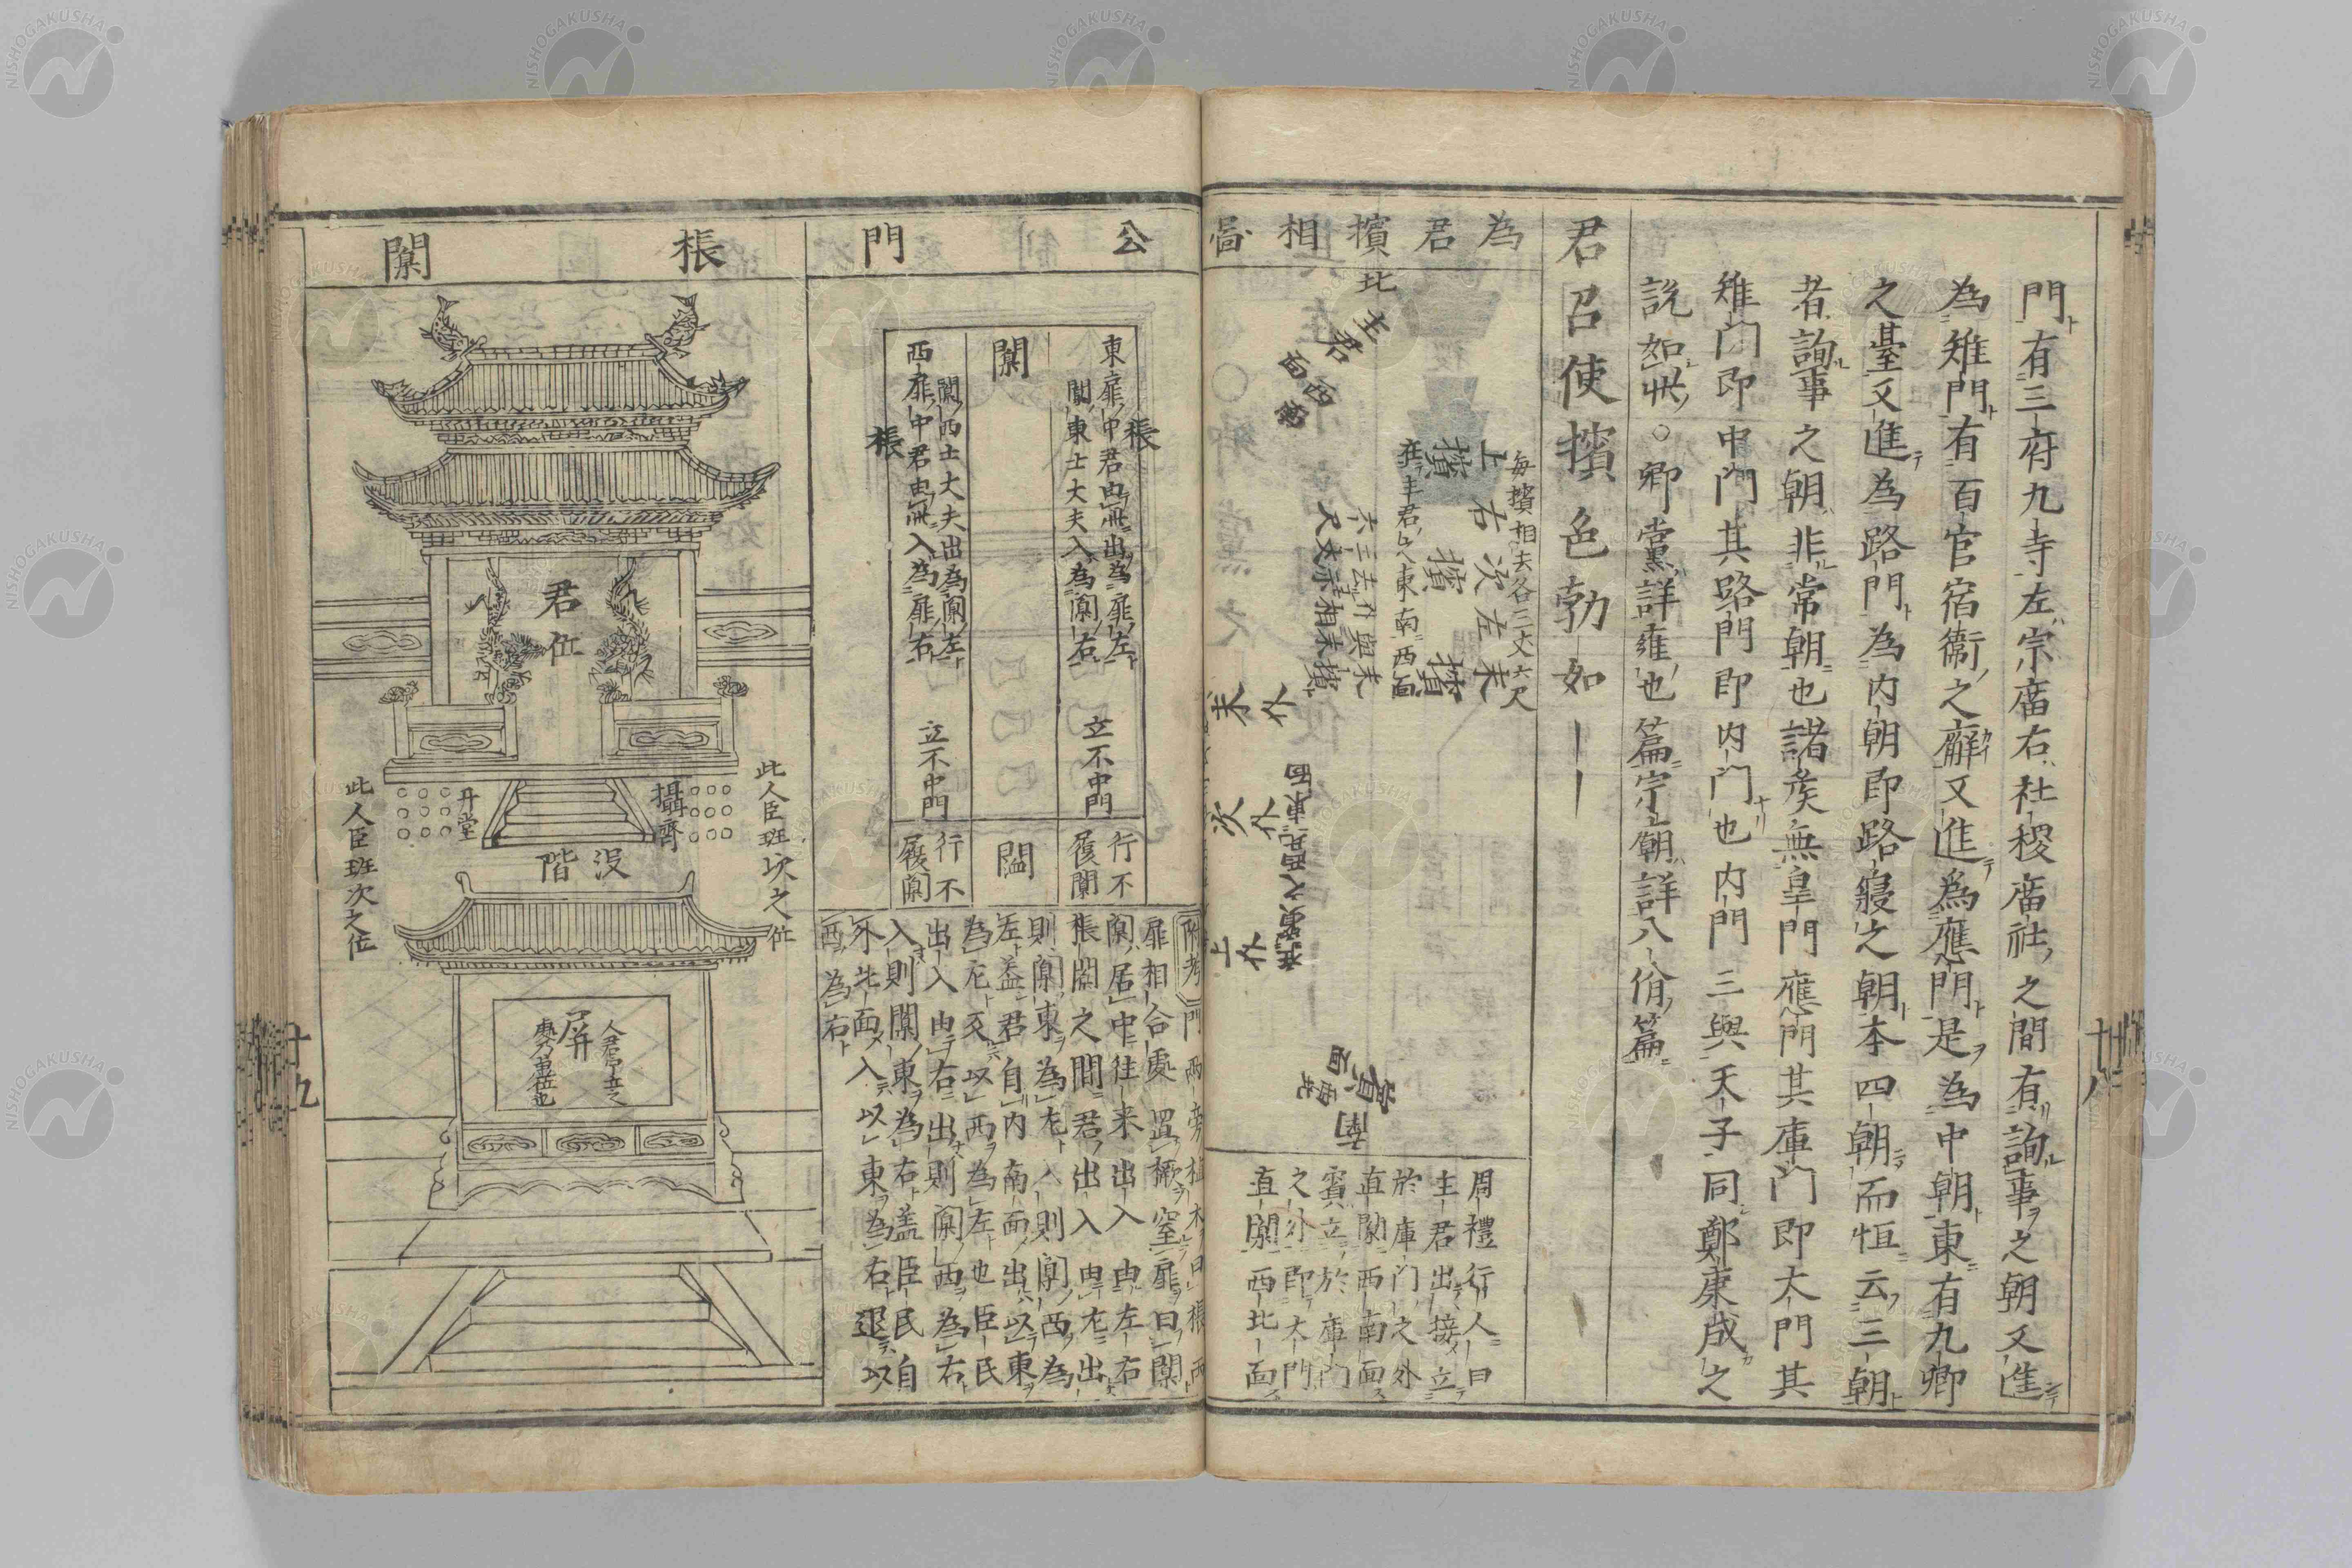 門有三府九寺左宗廟右社稷廟社之間有詢事之朝又進
為雉門有百官宿衛之廨又進為應門是為中朝東有九卿
之臺又進為路門為内朝即路寢之朝本四朝而恒云三朝
者詢事之朝非常朝也諸侯無皇門應門其庫门即大門其
雉门即中門其路門即内门也内門三與天子同鄭康成之
說如此○鄉黨詳雍也篇宗朝詳八佾篇
君召使擯色勃如
為君擯相啚
北
主君
西南面
每擯相去各三丈六尺
上擯
右
次擯
左
末擯
在主君之東南西面
末擯與末介
相去三丈六尺
末介
次介
上介
在賓之西北東面
賓
南
周禮行人曰
主君出接立
於庫门之外
直闑西南面
賓立於庫门
之外即大門
直闑西北面
公門
棖
東扉中君由此出為扉左
闑東士大夫入為闑右
闑
闑西士大夫出為闑左
西扉中君由此入為扉右
棖
立不中門
立不中門
行不
履閾
閾
行不
履閾
附考門兩旁植木曰棖兩
扉相合處置橛窒扉曰闑
闑居中往来出入由左右
棖闑之間君出入由左出
則闑東為左入則闑西為
左盖君自内南面出以東
為左反以西為左也臣民
出入由右出則闑西為右
入則闑東為右盖臣民自
外北面入以東為右退以
西為右
棖闑
君位
此人臣班次之位
攝齊
升堂
此人臣班次之位
没階
屏
人君宁立之
處乃虛位也
廿八
十九
NISHOGAKUSHA